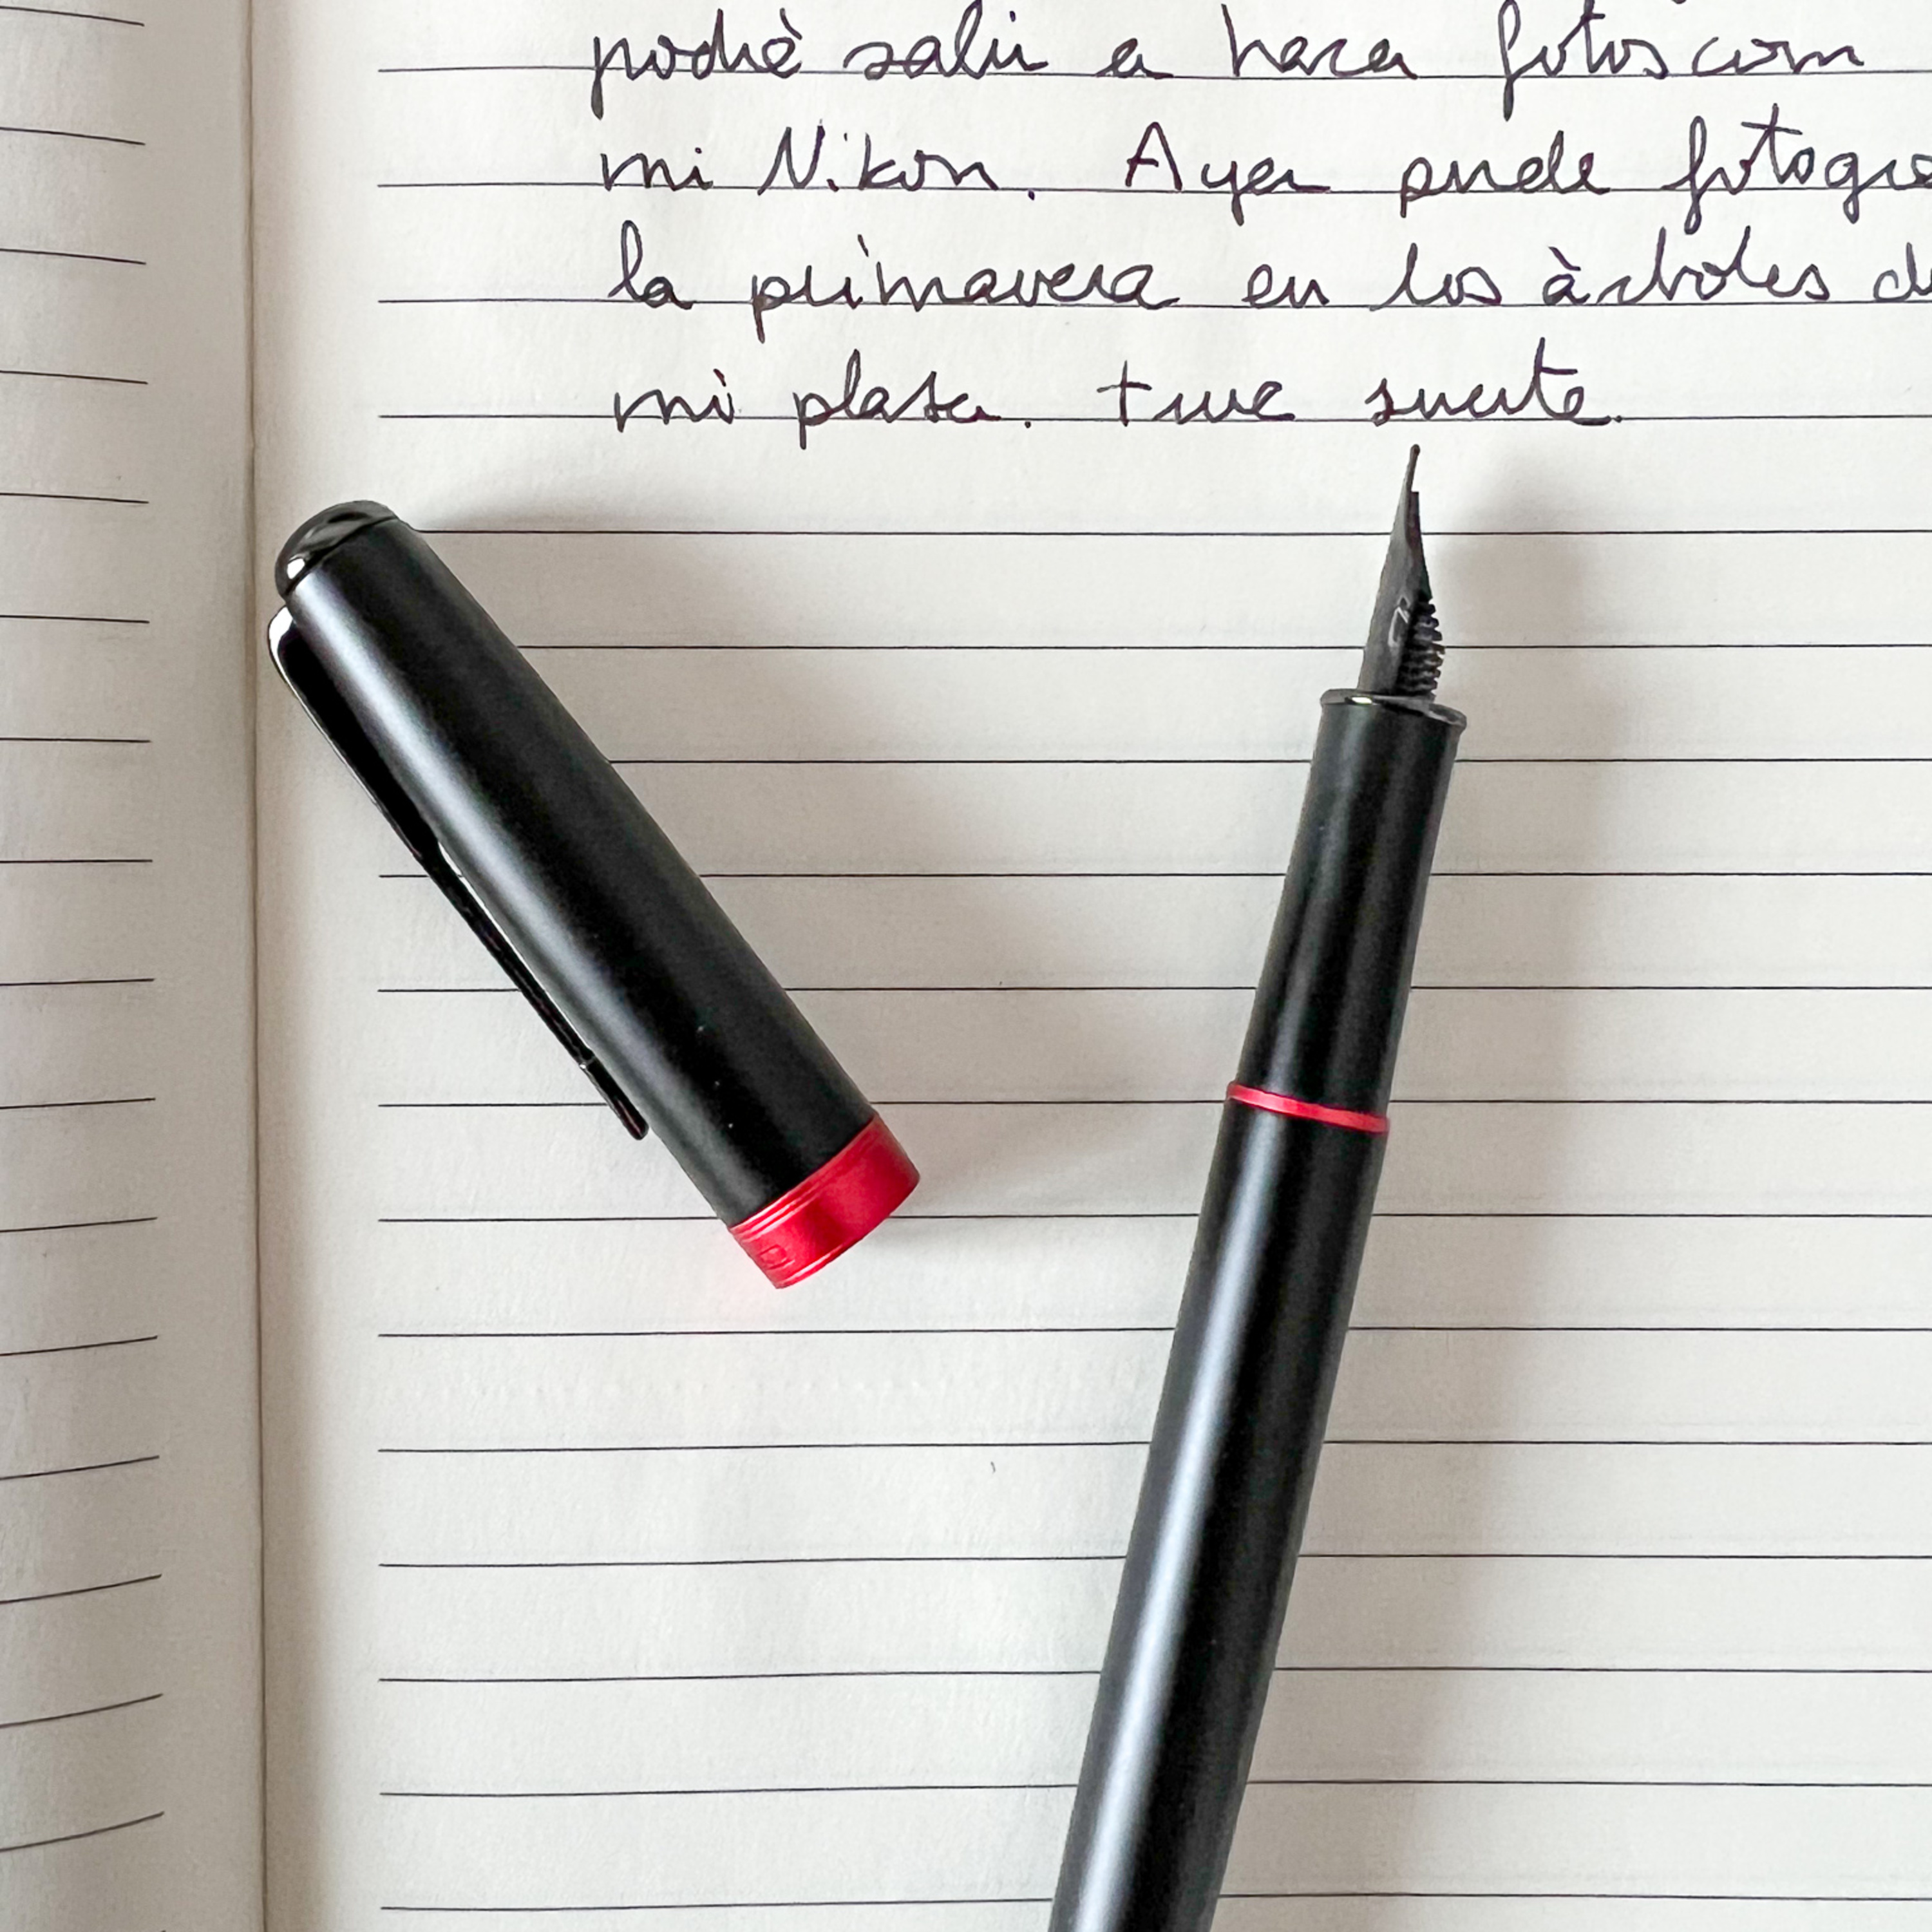 podrè salir a hacer fotos com
mi Nikon. Ayer pude fotogra
la primavera en los àrboles d
mi plasa. tuve suerte.